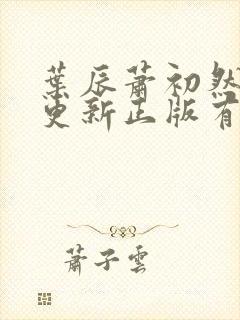 葉辰蕭初然
更新正版有
蕭子雲